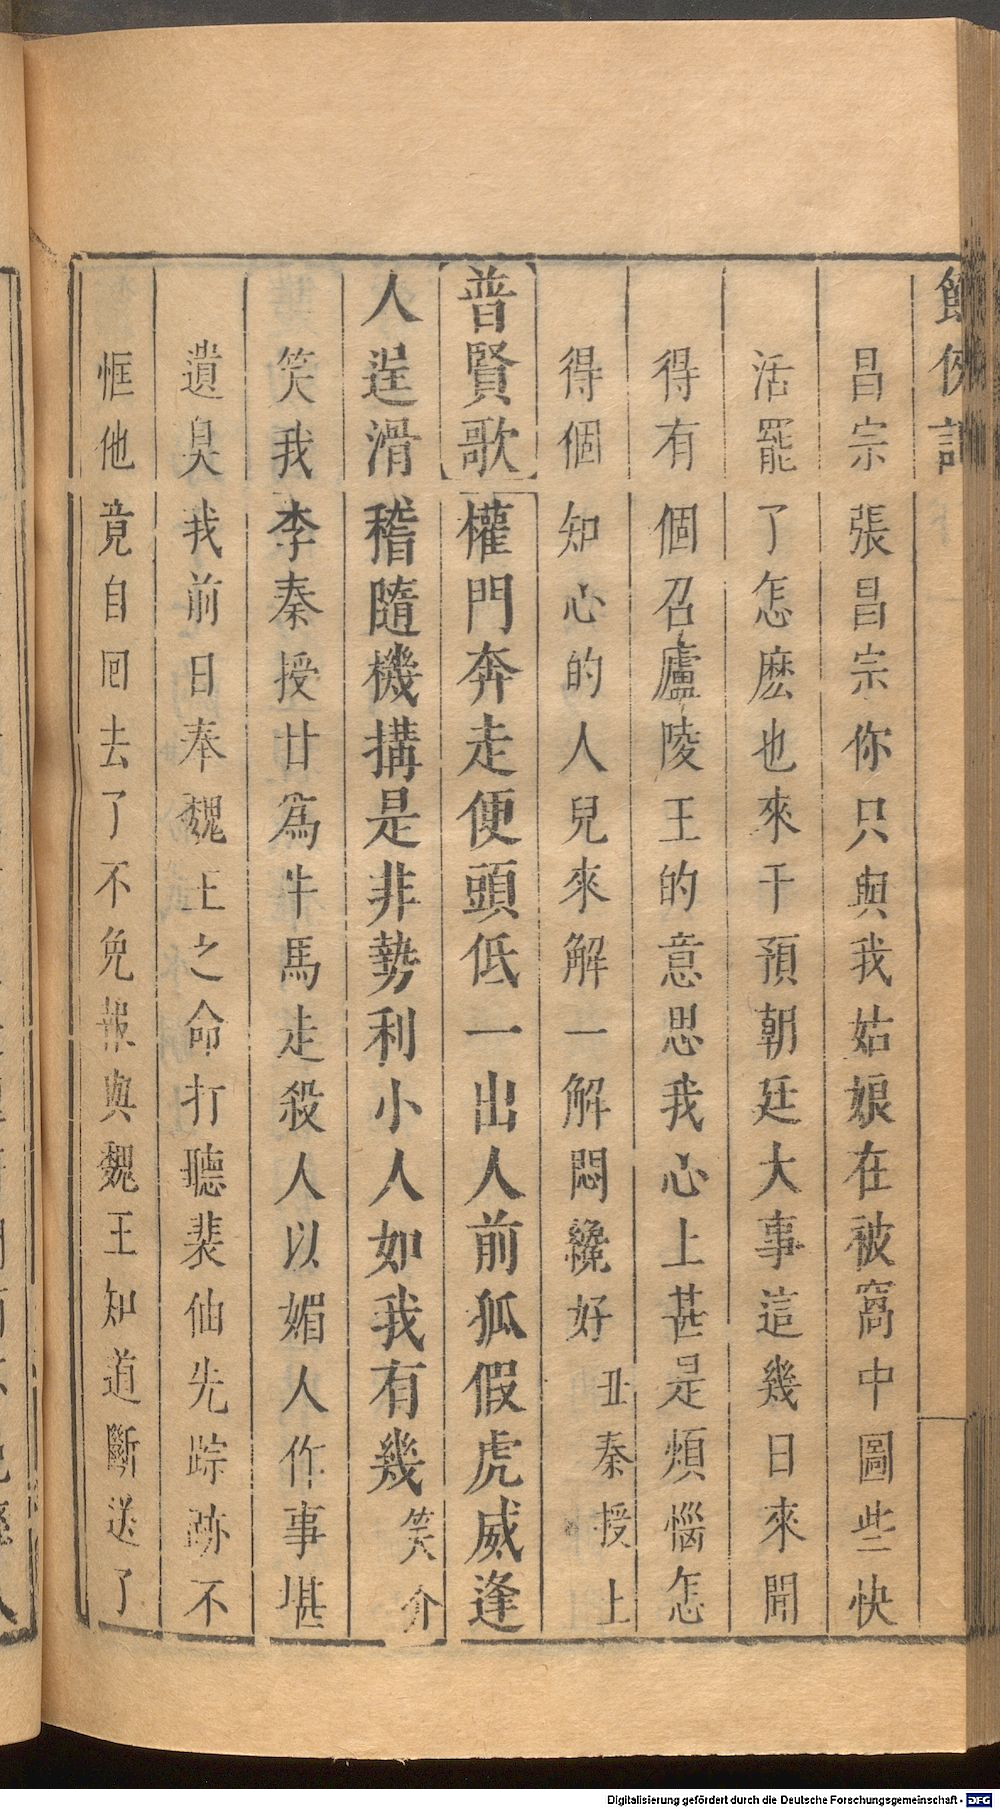 俠記
昌宗張昌宗你只與我姑娘在被窩中圖些快
活罷了怎麽也來干預朝廷大事這幾日來聞
得有個召廬陵王的意思我心上甚是煩惱怎
得個知心的人兒來解一解悶纔好 丑秦授上
普賢歌權門奔走便頭低一出人前狐假虎威逢
人逞滑稽隨機搆是非勢利小人如我有幾 笑介
笑我李秦授廿爲牛馬走殺人以媚人作事堪
遺臭我前日奉魏王之命打聽裴仙先踪跡不
恇他竟自回去了不免報與魏王知道斷送了
Digitalisierung gefördert durch die Deutsche Forschungsgemeinschaft - DFG